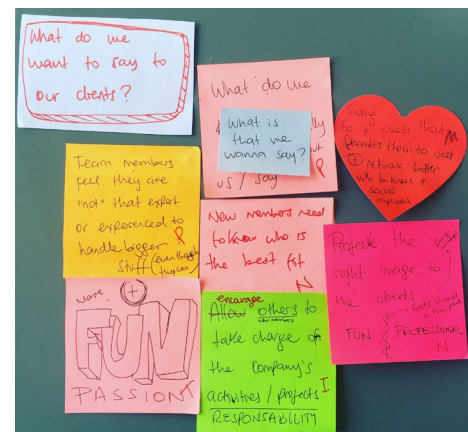 What do we
want to say to
our clients?
What do we
us / say
P
What is
that we
wanna say?
to clients that
Permits them to seek
+ network better
with business +
social
Team members
feel they are
"not" that expert
or experienced to
handle bigger
stuff (even though
they can)
P
New members need
to know who is
the best fit
N
Project the
right image to
the clients
FUN PROFESSIONAL
N
more +
FUN
PASSION
encourage
Allow others to
new members
take charge of
the Company's
activities / projects I
RESPONSABILITY